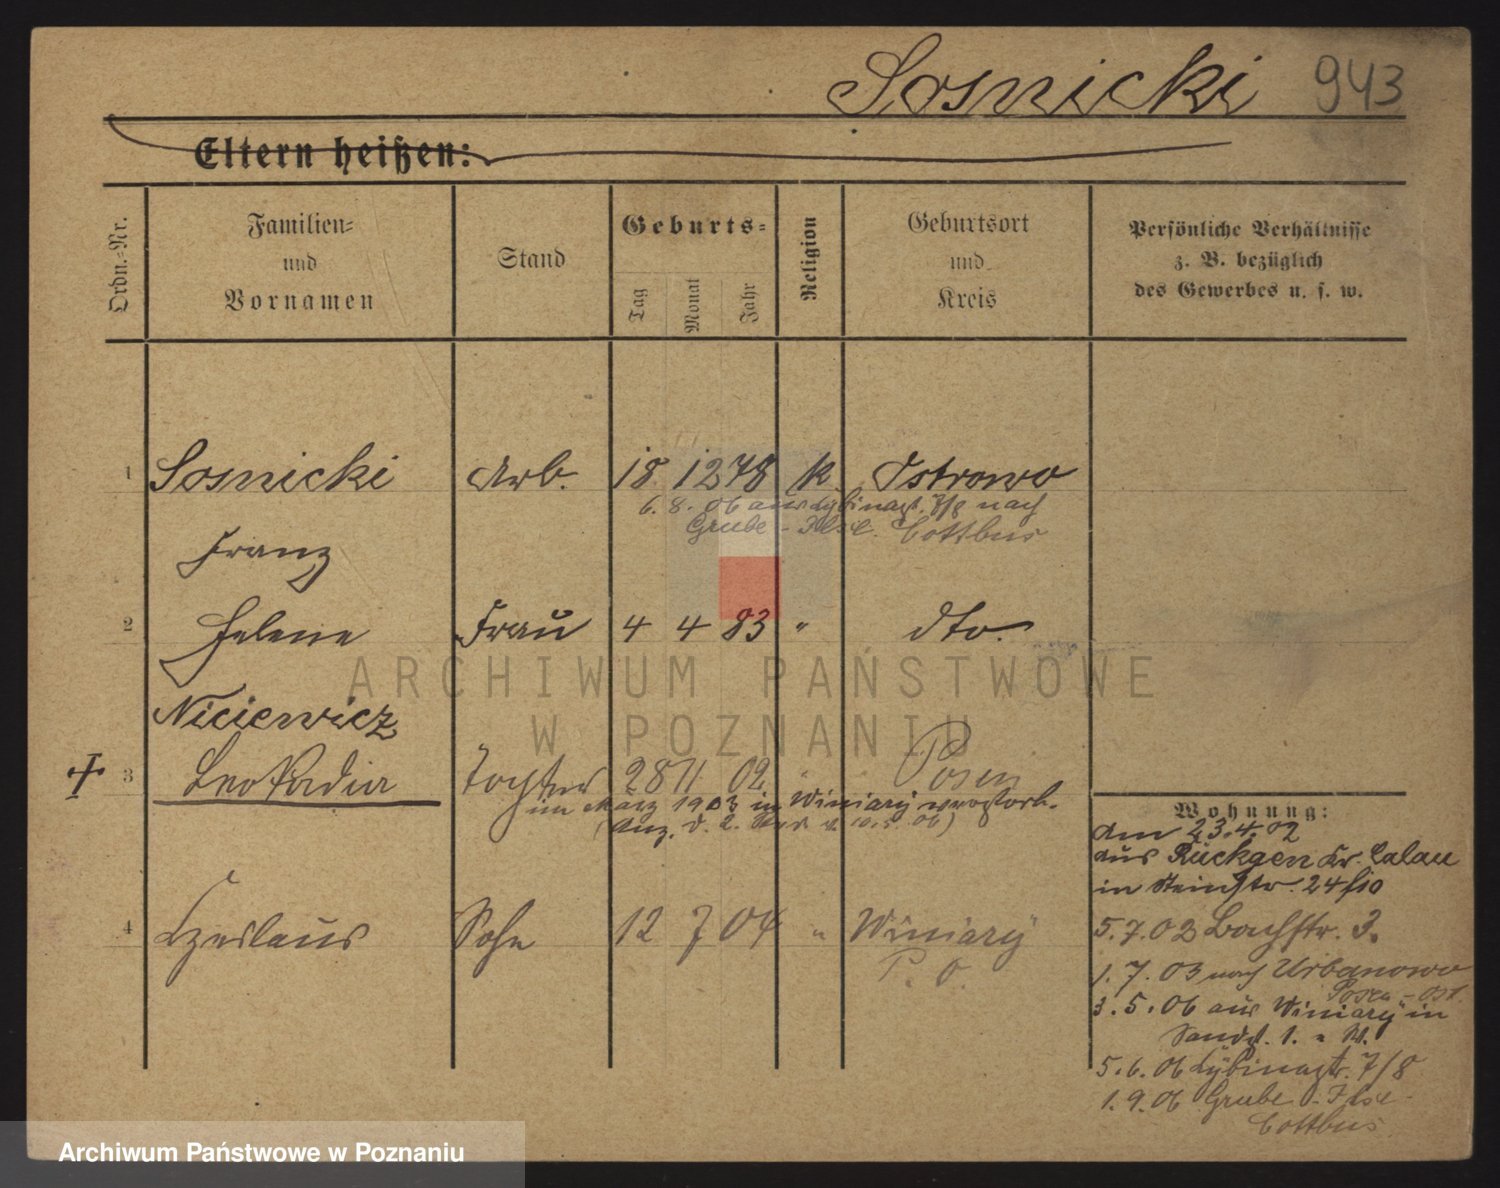 Sosnicki 943
Eltern heißen:
Ordn.-Nr.
Familien-
und
Vornamen
Stand
Geburts-
Tag
Monat
Jahr
Religion
Geburtsort
und
Kreis
Persönliche Verhältnisse
z. B. bezüglich
des Gewerbes u. s. w.
1 Sosnicki Arb. 18 12 78 k. Ostrowo
6. 8. 06 aus Lybinastr. 7/8 nach
Grube-Ilse. Cottbus
Franz
2 Helene Frau 4 4 83 " dto.
ARCHIWUM PAŃSTWOWE
W POZNANIU
Niciewicz
3 Leokadia Tochter 28 11 02 " Posen
im März 1903 in Winiary verstorb.
(Anz. d. 2. 10.5.06)
4 Czeslaus Sohn 12 7 04 " Winiary
P. O.
Wohnung:
Am 23.4.02
aus Rückgen Kr. Calau
in Steinstr. 24 b/10
5.7.02 Bachstr. 3.
1.7.03 nach Urbanowo
Posen-Ost.
3.5.06 aus Winiary in
Sandst. 1.
5.6.06 Lybinastr. 7/8
1.9.06 Grube-Ilse-
Cottbus
Archiwum Państwowe w Poznaniu